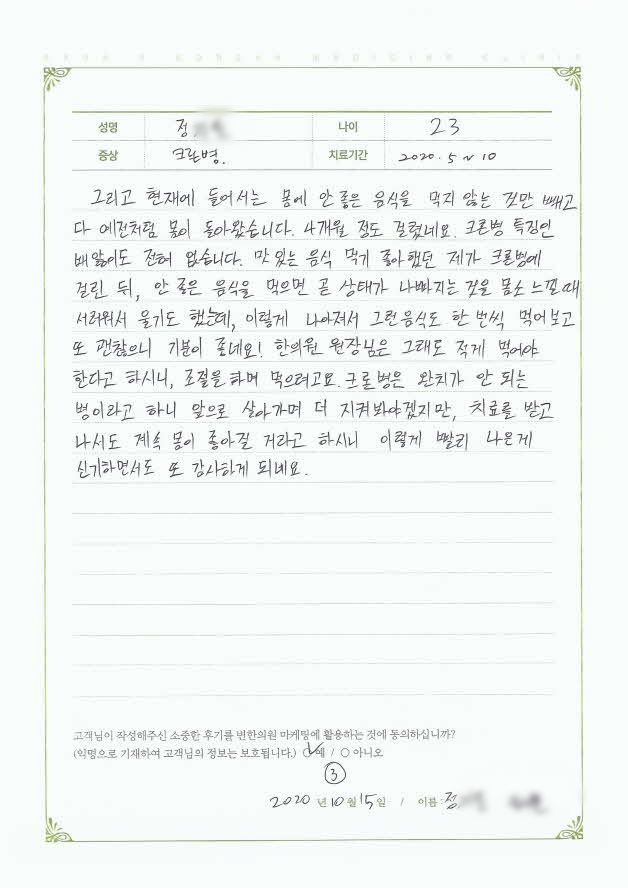 성명 정 나이 23
증상 크론병. 치료기간 2020. 5 ~ 10
그리고 현재에 들어서는 몸에 안 좋은 음식을 먹지 않는 것만 빼고
다 예전처럼 몸이 돌아왔습니다. 4개월 정도 걸렸네요. 크론병 특징인
배앓이도 전혀 없습니다. 맛있는 음식 먹기 좋아했던 제가 크론병에
걸린 뒤, 안 좋은 음식을 먹으면 곧 상태가 나빠지는 것을 몸소 느낄때
서러워서 울기도 했는데, 이렇게 나아져서 그런음식도 한 번씩 먹어보고
또 괜찮으니 기분이 좋네요! 한의원 원장님은 그래도 적게 먹어야
한다고 하시니, 조절을 하며 먹으려고요. 크론병은 완치가 안 되는
병이라고 하니 앞으로 살아가며 더 지켜봐야겠지만, 치료를 받고
나서도 계속 몸이 좋아질 거라고 하시니 이렇게 빨리 나은게
신기하면서도 또 감사하게 되네요.
고객님이 작성해주신 소중한 후기를 변한의원 마케팅에 활용하는 것에 동의하십니까?
(익명으로 기재하여 고객님의 정보는 보호됩니다.) ○ 예 / ○ 아니오
③
2020 년 10 월 15 일 / 이름 : 정